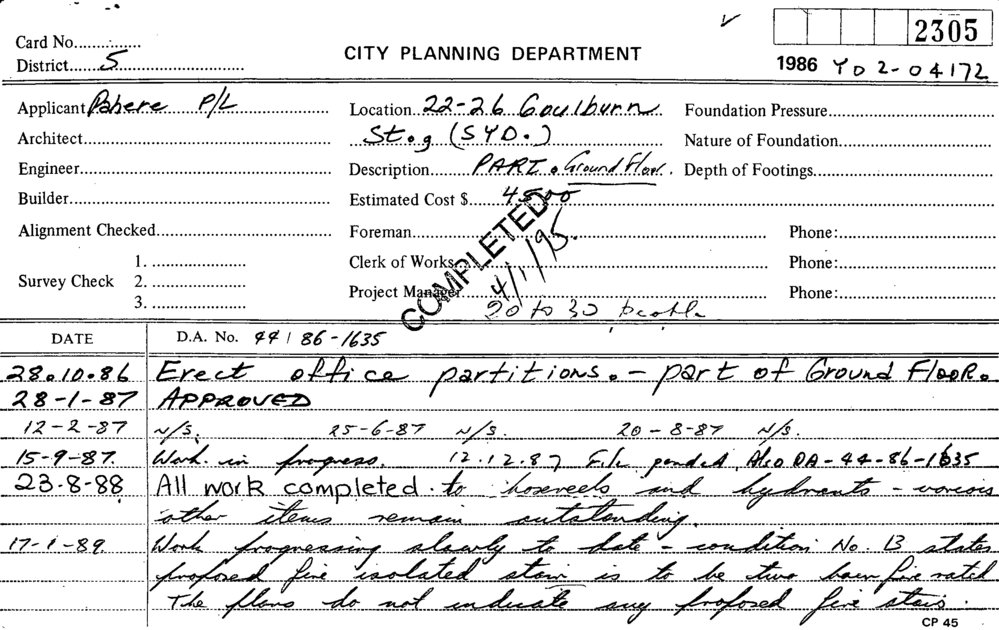 2305
Card No.
District 5
CITY PLANNING DEPARTMENT
1986 YD2-04172
Applicant Pahere P/L
Location 22-26 Goulburn
Foundation Pressure
Architect
St. g (SYD.)
Nature of Foundation
Engineer
Description PART. Ground Floor.
Depth of Footings
Builder
Estimated Cost $ 4500
Alignment Checked
Foreman
Phone:
COMPLETED
4/1/95.
Survey Check
1.
2.
3.
Clerk of Works
Phone:
Project Manager
Phone:
20 to 30 people
DATE
D.A. No. 44/86-1635
28.10.86 Erect office partitions. - part of Ground Floor.
28-1-87 APPROVED
12-2-87 N/S. 25-6-87 N/S. 20-8-87 N/S.
15-9-87. Work in progress. 12.12.87 File Also DA-44-86-1635
23-8-88 All work completed to hosereels and hydrants - various
other items remain outstanding.
17-1-89. Work progressing slowly to date - condition No. 13 states
proposed fire isolated stair is to be two hour fire rated
The plans do not indicate any proposed fire stairs.
CP 45